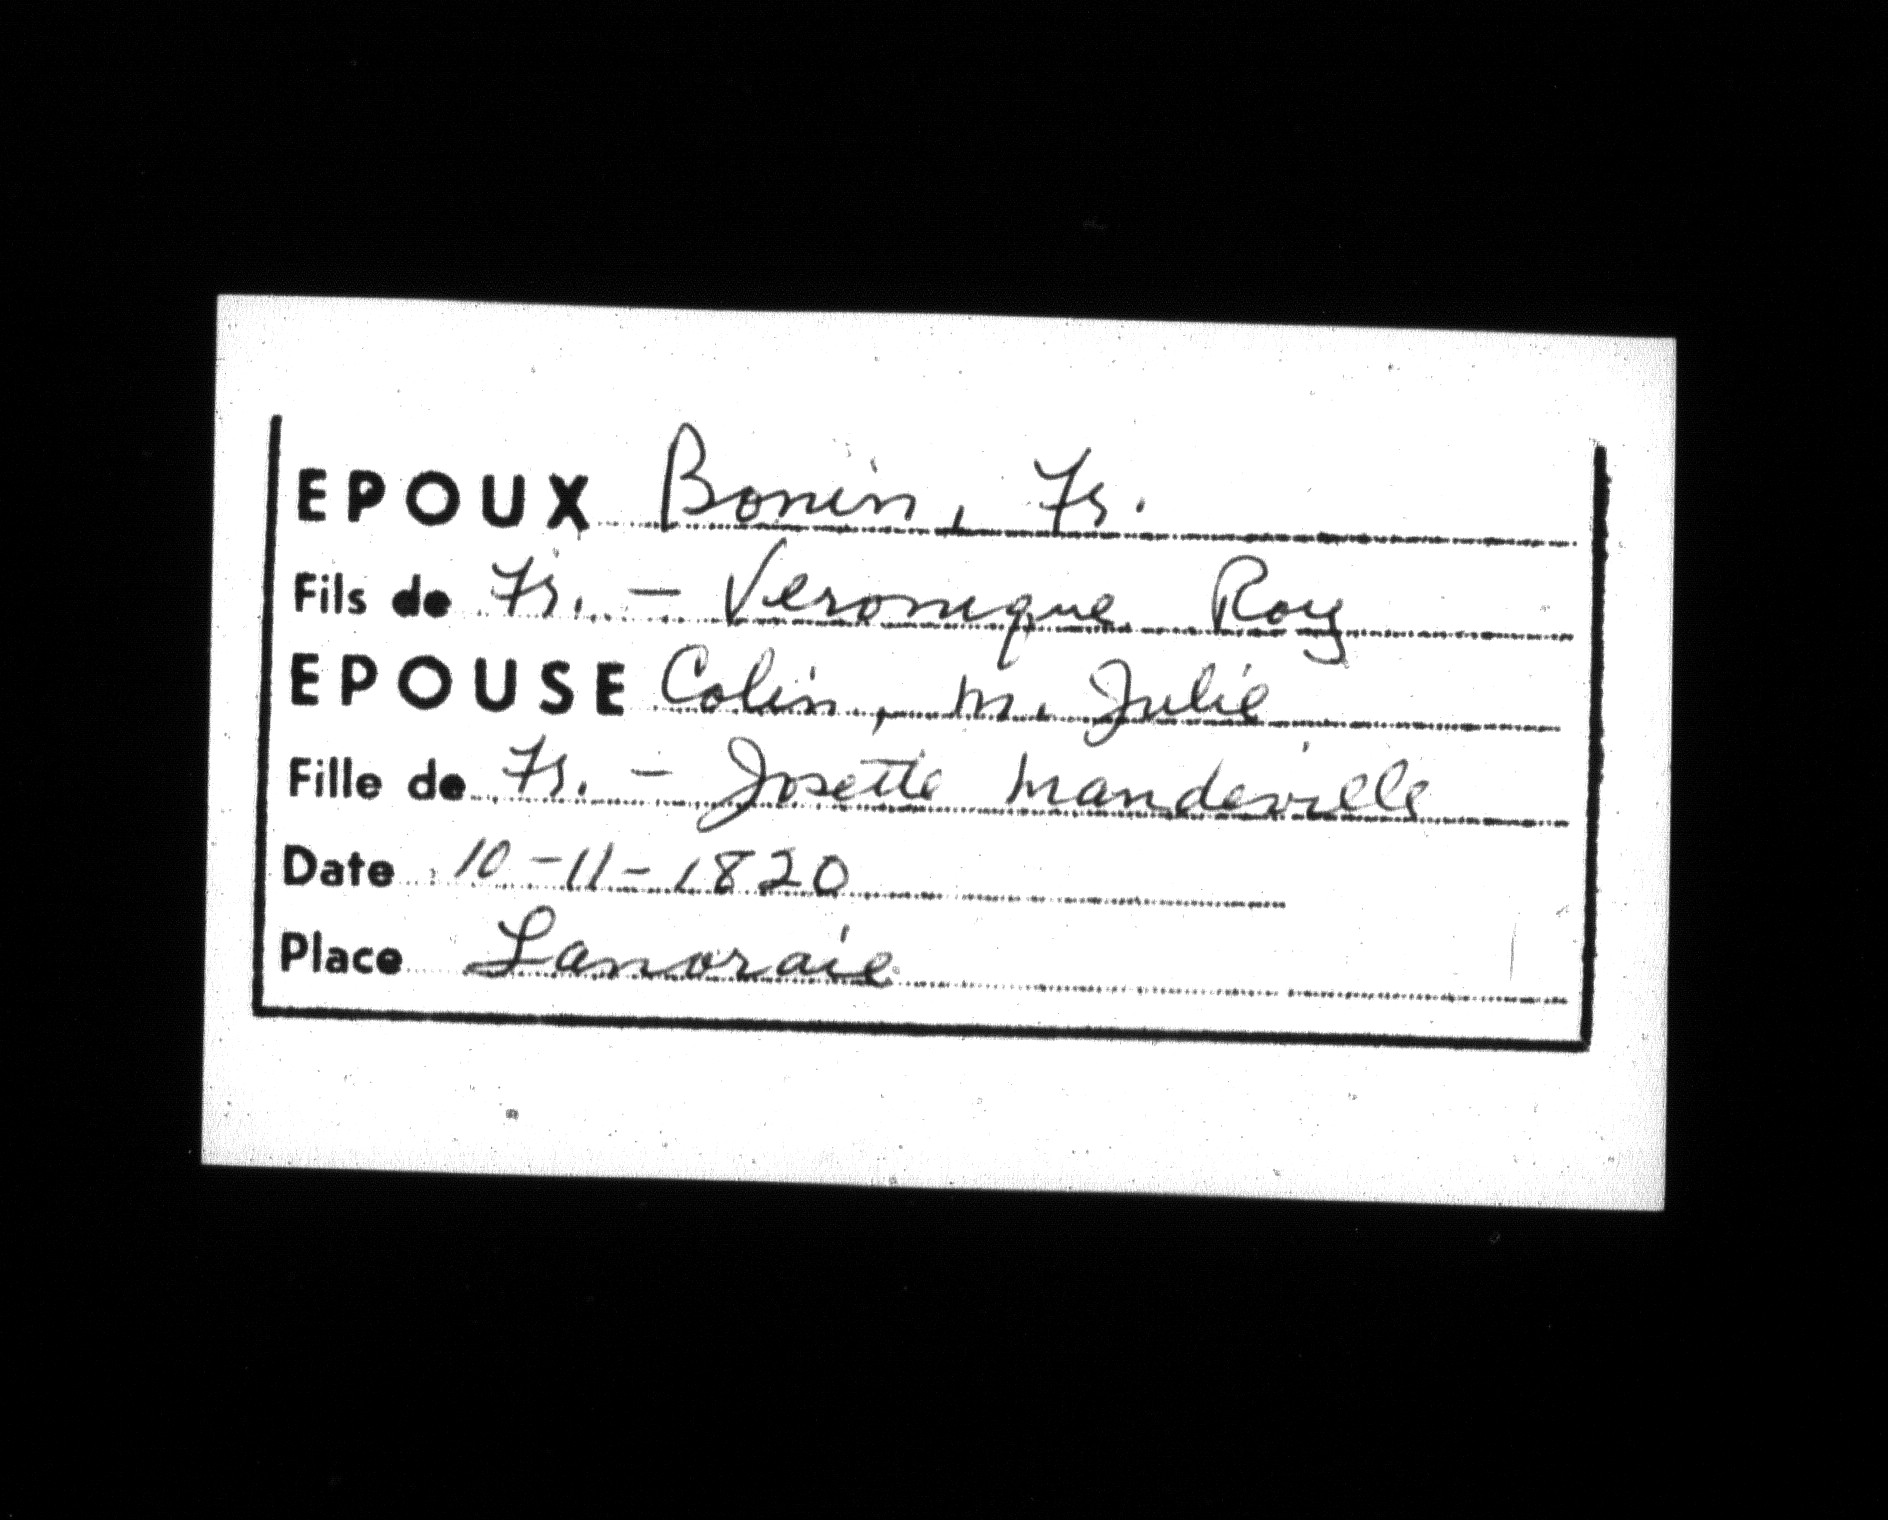 EPOUX Bonin, Fr.
Fils de Fr. - Veronique Roy
EPOUSE Colin, m. Julie
Fille de Fr. - Josette Mandeville
Date 10-11-1820
Place Lanoraie